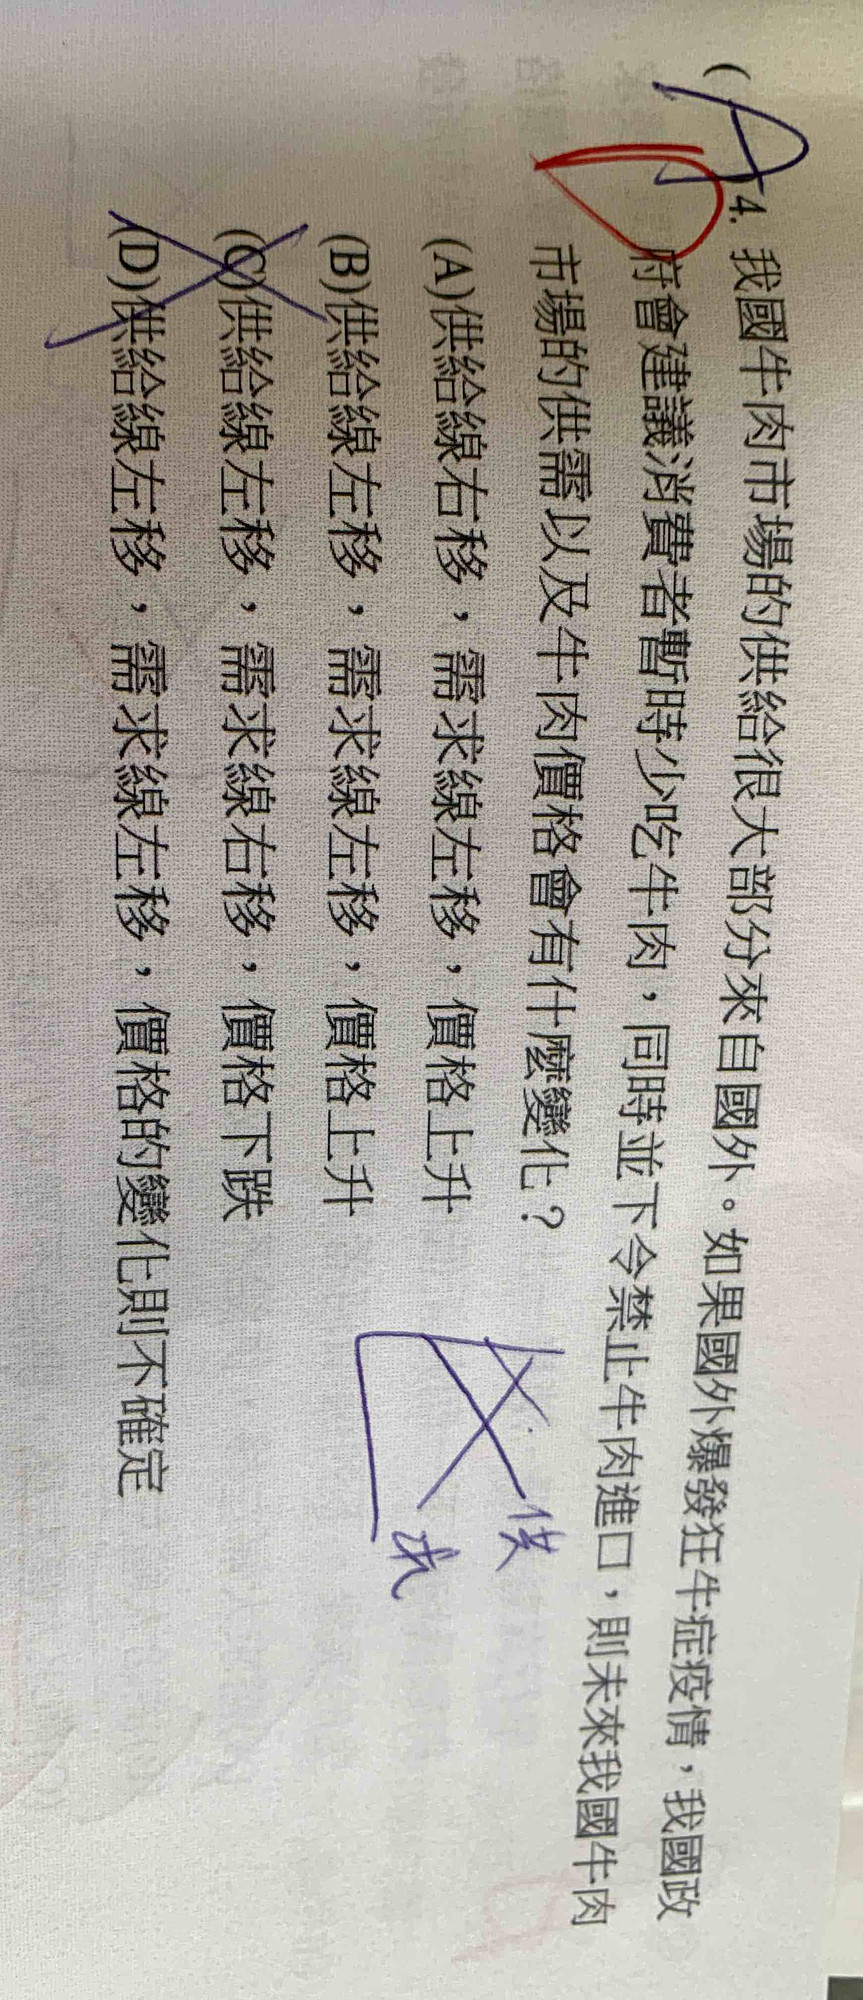 (A)4. 我國牛肉市場的供給很大部分來自國外。如果國外爆發狂牛症疫情,我國政
D
府會建議消費者暫時少吃牛肉,同時並下令禁止牛肉進口,則未來我國牛肉
市場的供需以及牛肉價格會有什麼變化?
(A)供給線右移,需求線左移,價格上升
(B)供給線左移,需求線左移,價格上升
(C)供給線左移,需求線右移,價格下跌
(D)供給線左移,需求線左移,價格的變化則不確定
供
求